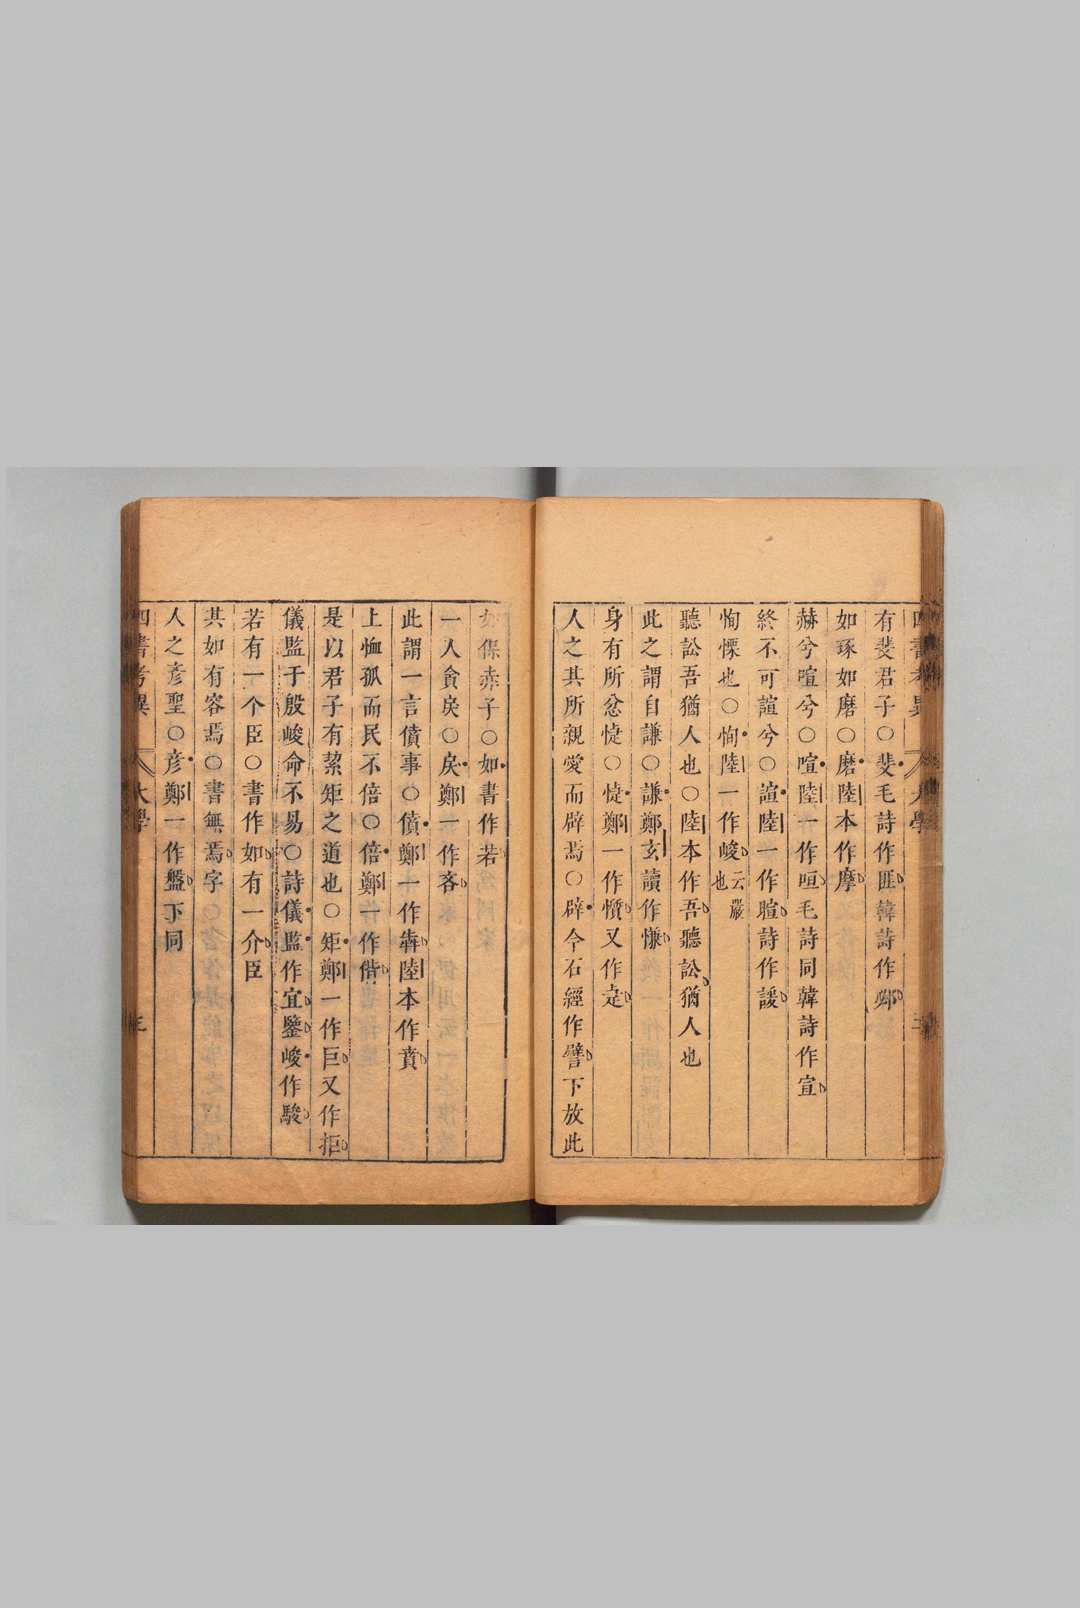 有斐君子○斐毛詩作匪韓詩作邲
如琢如磨○磨陸本作摩
赫兮喧兮○喧陸一作咺毛詩同韓詩作宣
終不可諠兮○諠陸一作暄詩作諼
恂慄也○恂陸一作峻云嚴也
聽訟吾猶人也○陸本作吾聽訟猶人也
此之謂自謙○謙鄭玄讀作慊
身有所忿懥○懥鄭一作懫又作疐
人之其所親愛而辟焉○辟今石經作譬下放此
如保赤子○如書作若
一人貪戾○戾鄭一作吝
此謂一言僨事○僨鄭一作犇陸本作賁
上恤孤而民不倍○倍鄭一作偝
是以君子有絜矩之道也○矩鄭一作巨又作拒
儀監于殷峻命不易○詩儀監作宜鑒峻作駿
若有一个臣○書作如有一介臣
其如有容焉○書無焉字
人之彥聖○彥鄭一作盤下同
四書考異
大學
三